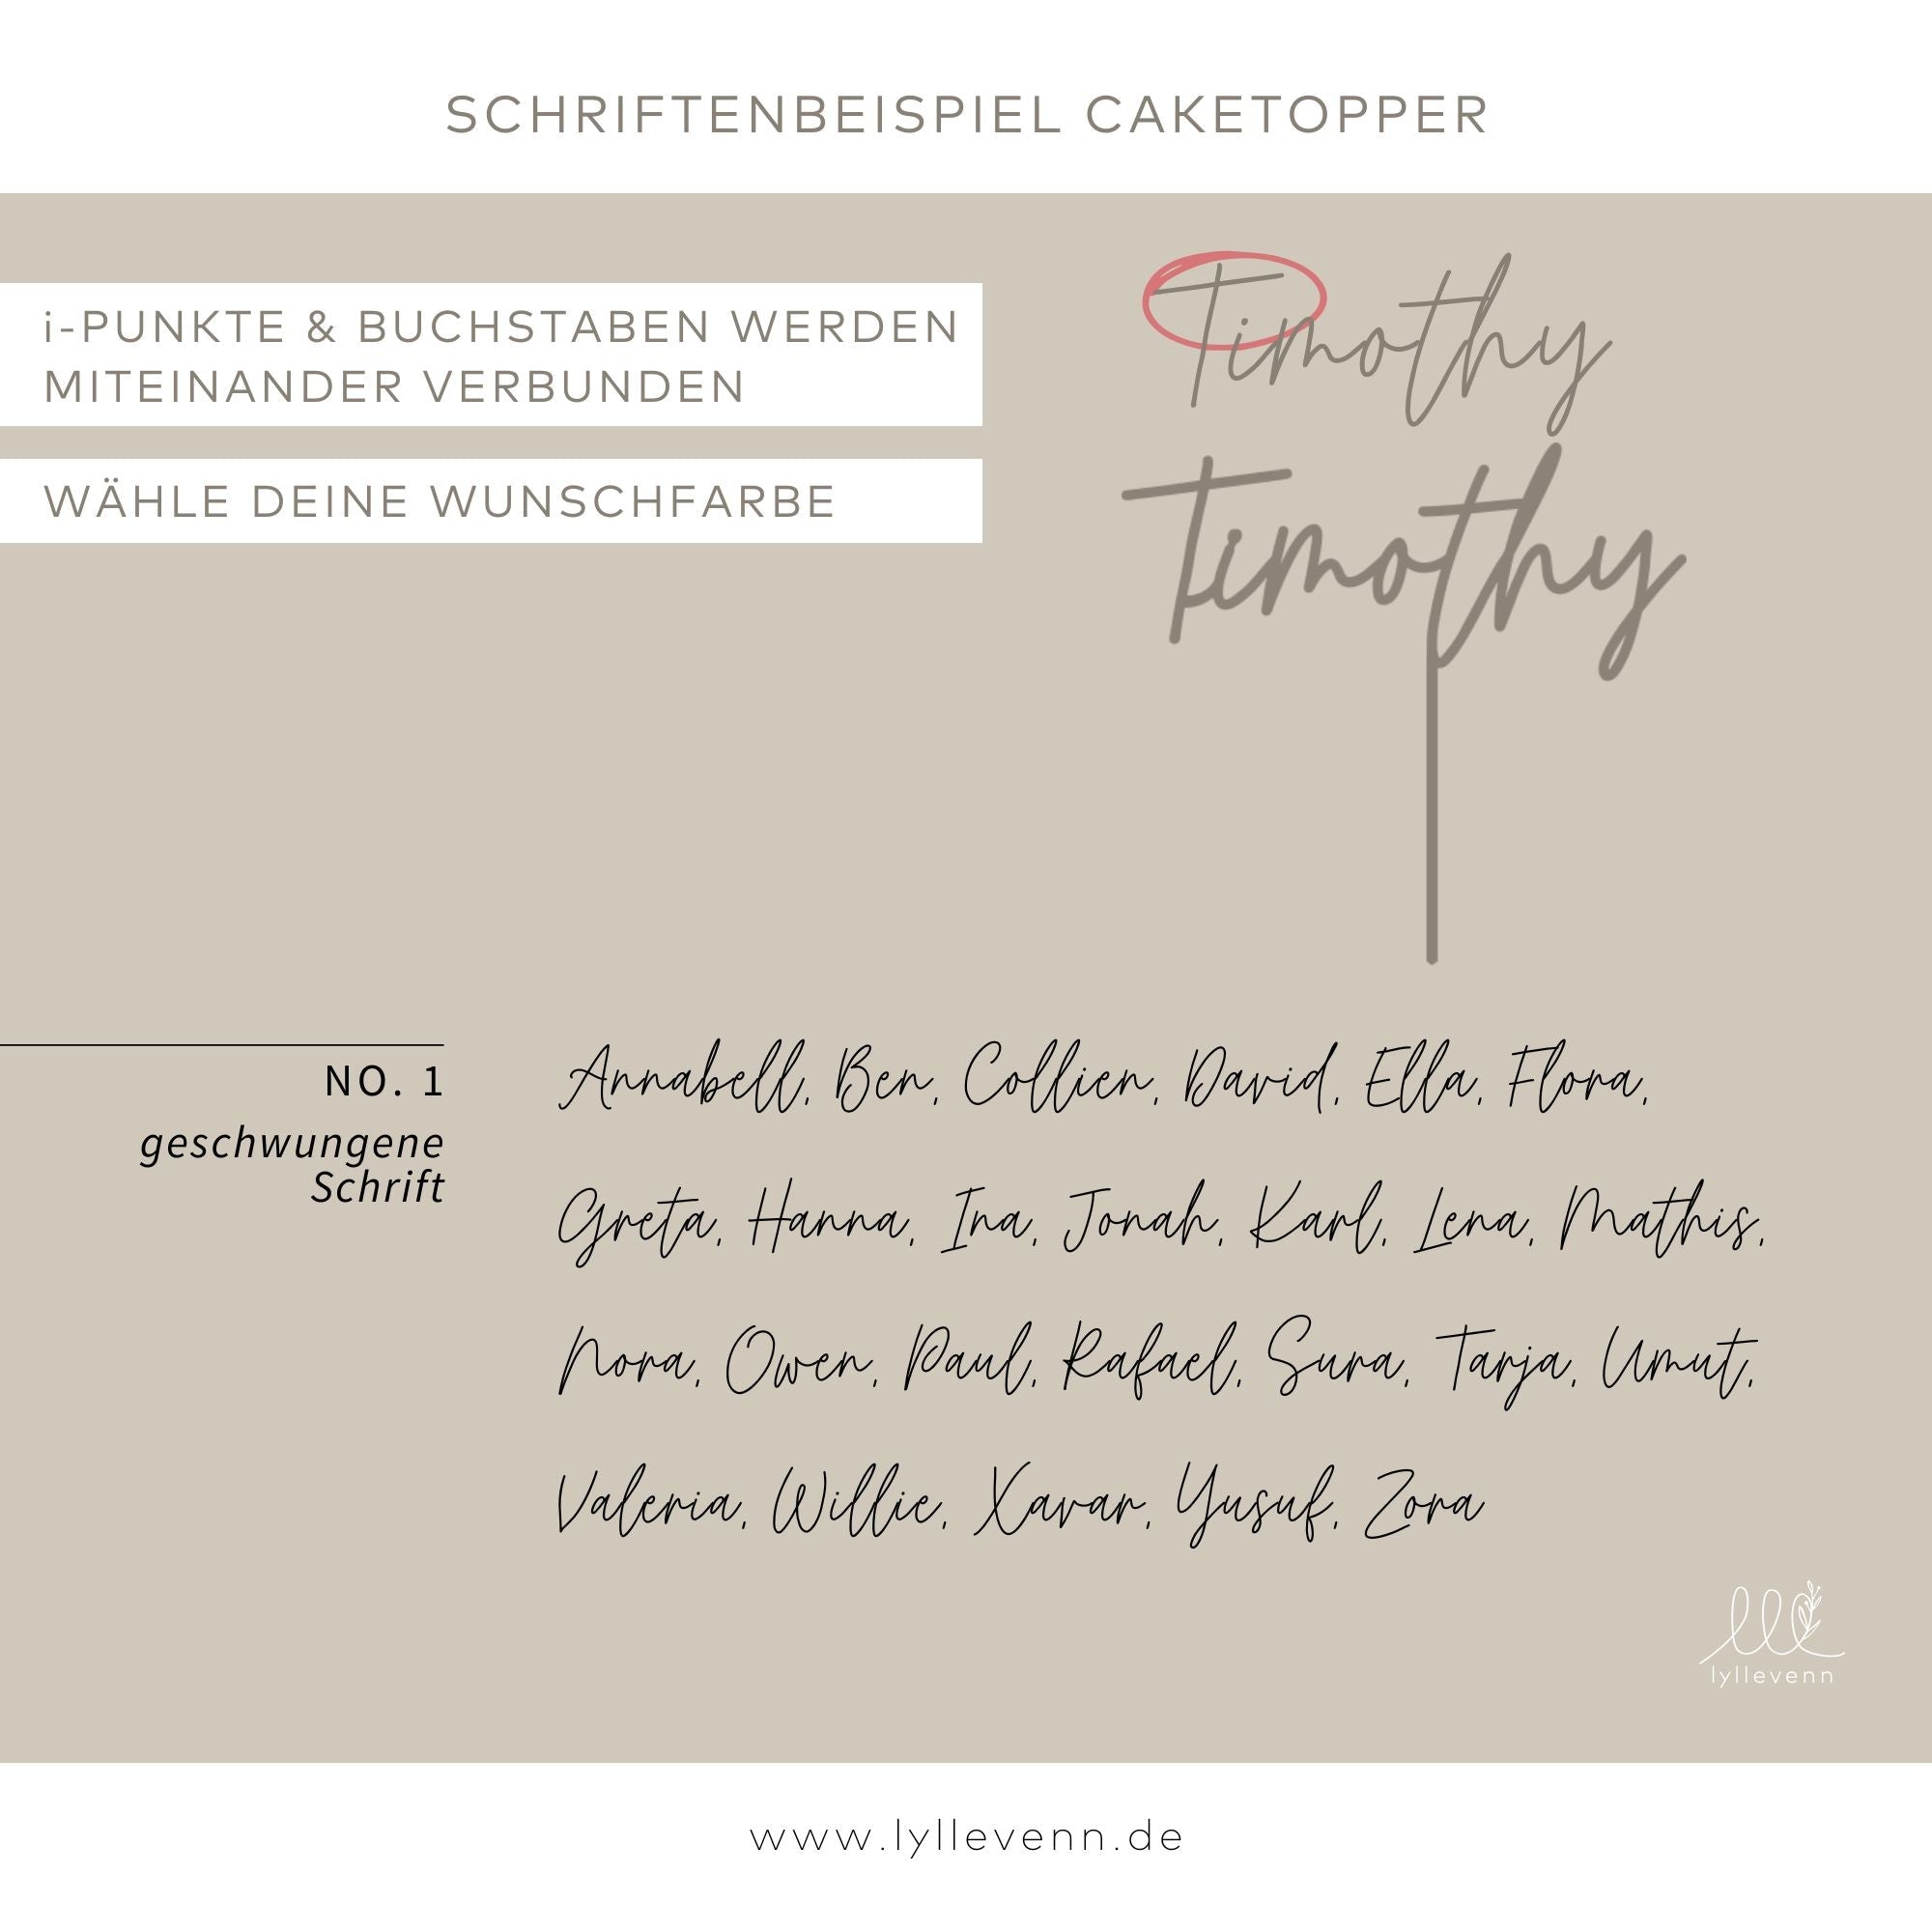 SCHRIFTENBEISPIEL CAKETOPPER
i-PUNKTE & BUCHSTABEN WERDEN
MITEINANDER VERBUNDEN
WÄHLE DEINE WUNSCHFARBE
Timothy
Timothy
NO. 1
geschwungene
Schrift
Annabell, Ben, Collien, David, Ella, Flora,
Greta, Hanna, Ina, Jonah, Karl, Lena, Mathis,
Nora, Owen, Paul, Rafael, Sura, Tanja, Umut,
Valeria, Willie, Xavar, Yusuf, Zora
lyllevenn
www.lyllevenn.de